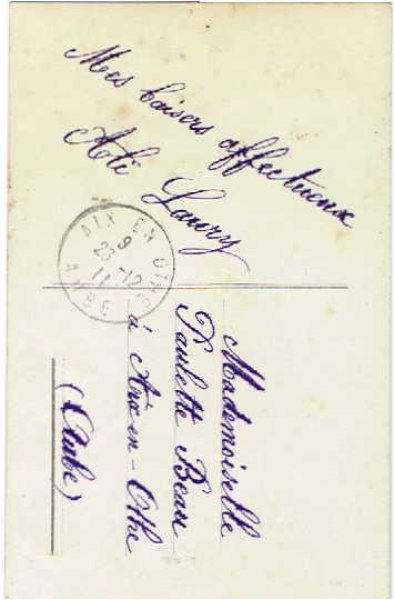 Mes baisers affectueux
Laury
AIX EN OTHE
9
23-12
11
AUBE
Mademoiselle
Paulette
à Aix-en-Othe
(Aube)